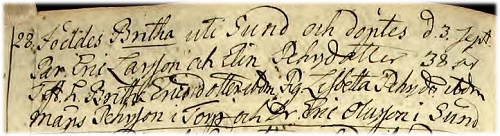 28. Föddes Britha uti Sund och döptes d. 3. Sept
Par. Eric Larsson och Elin Pehrsdotter 38 år
Test. h. Britha Ersdotter ibm Pig. Lisbetta Pehrsdr ibm
Mans Pehrsson i och Dr. Eric Olasson i Sund